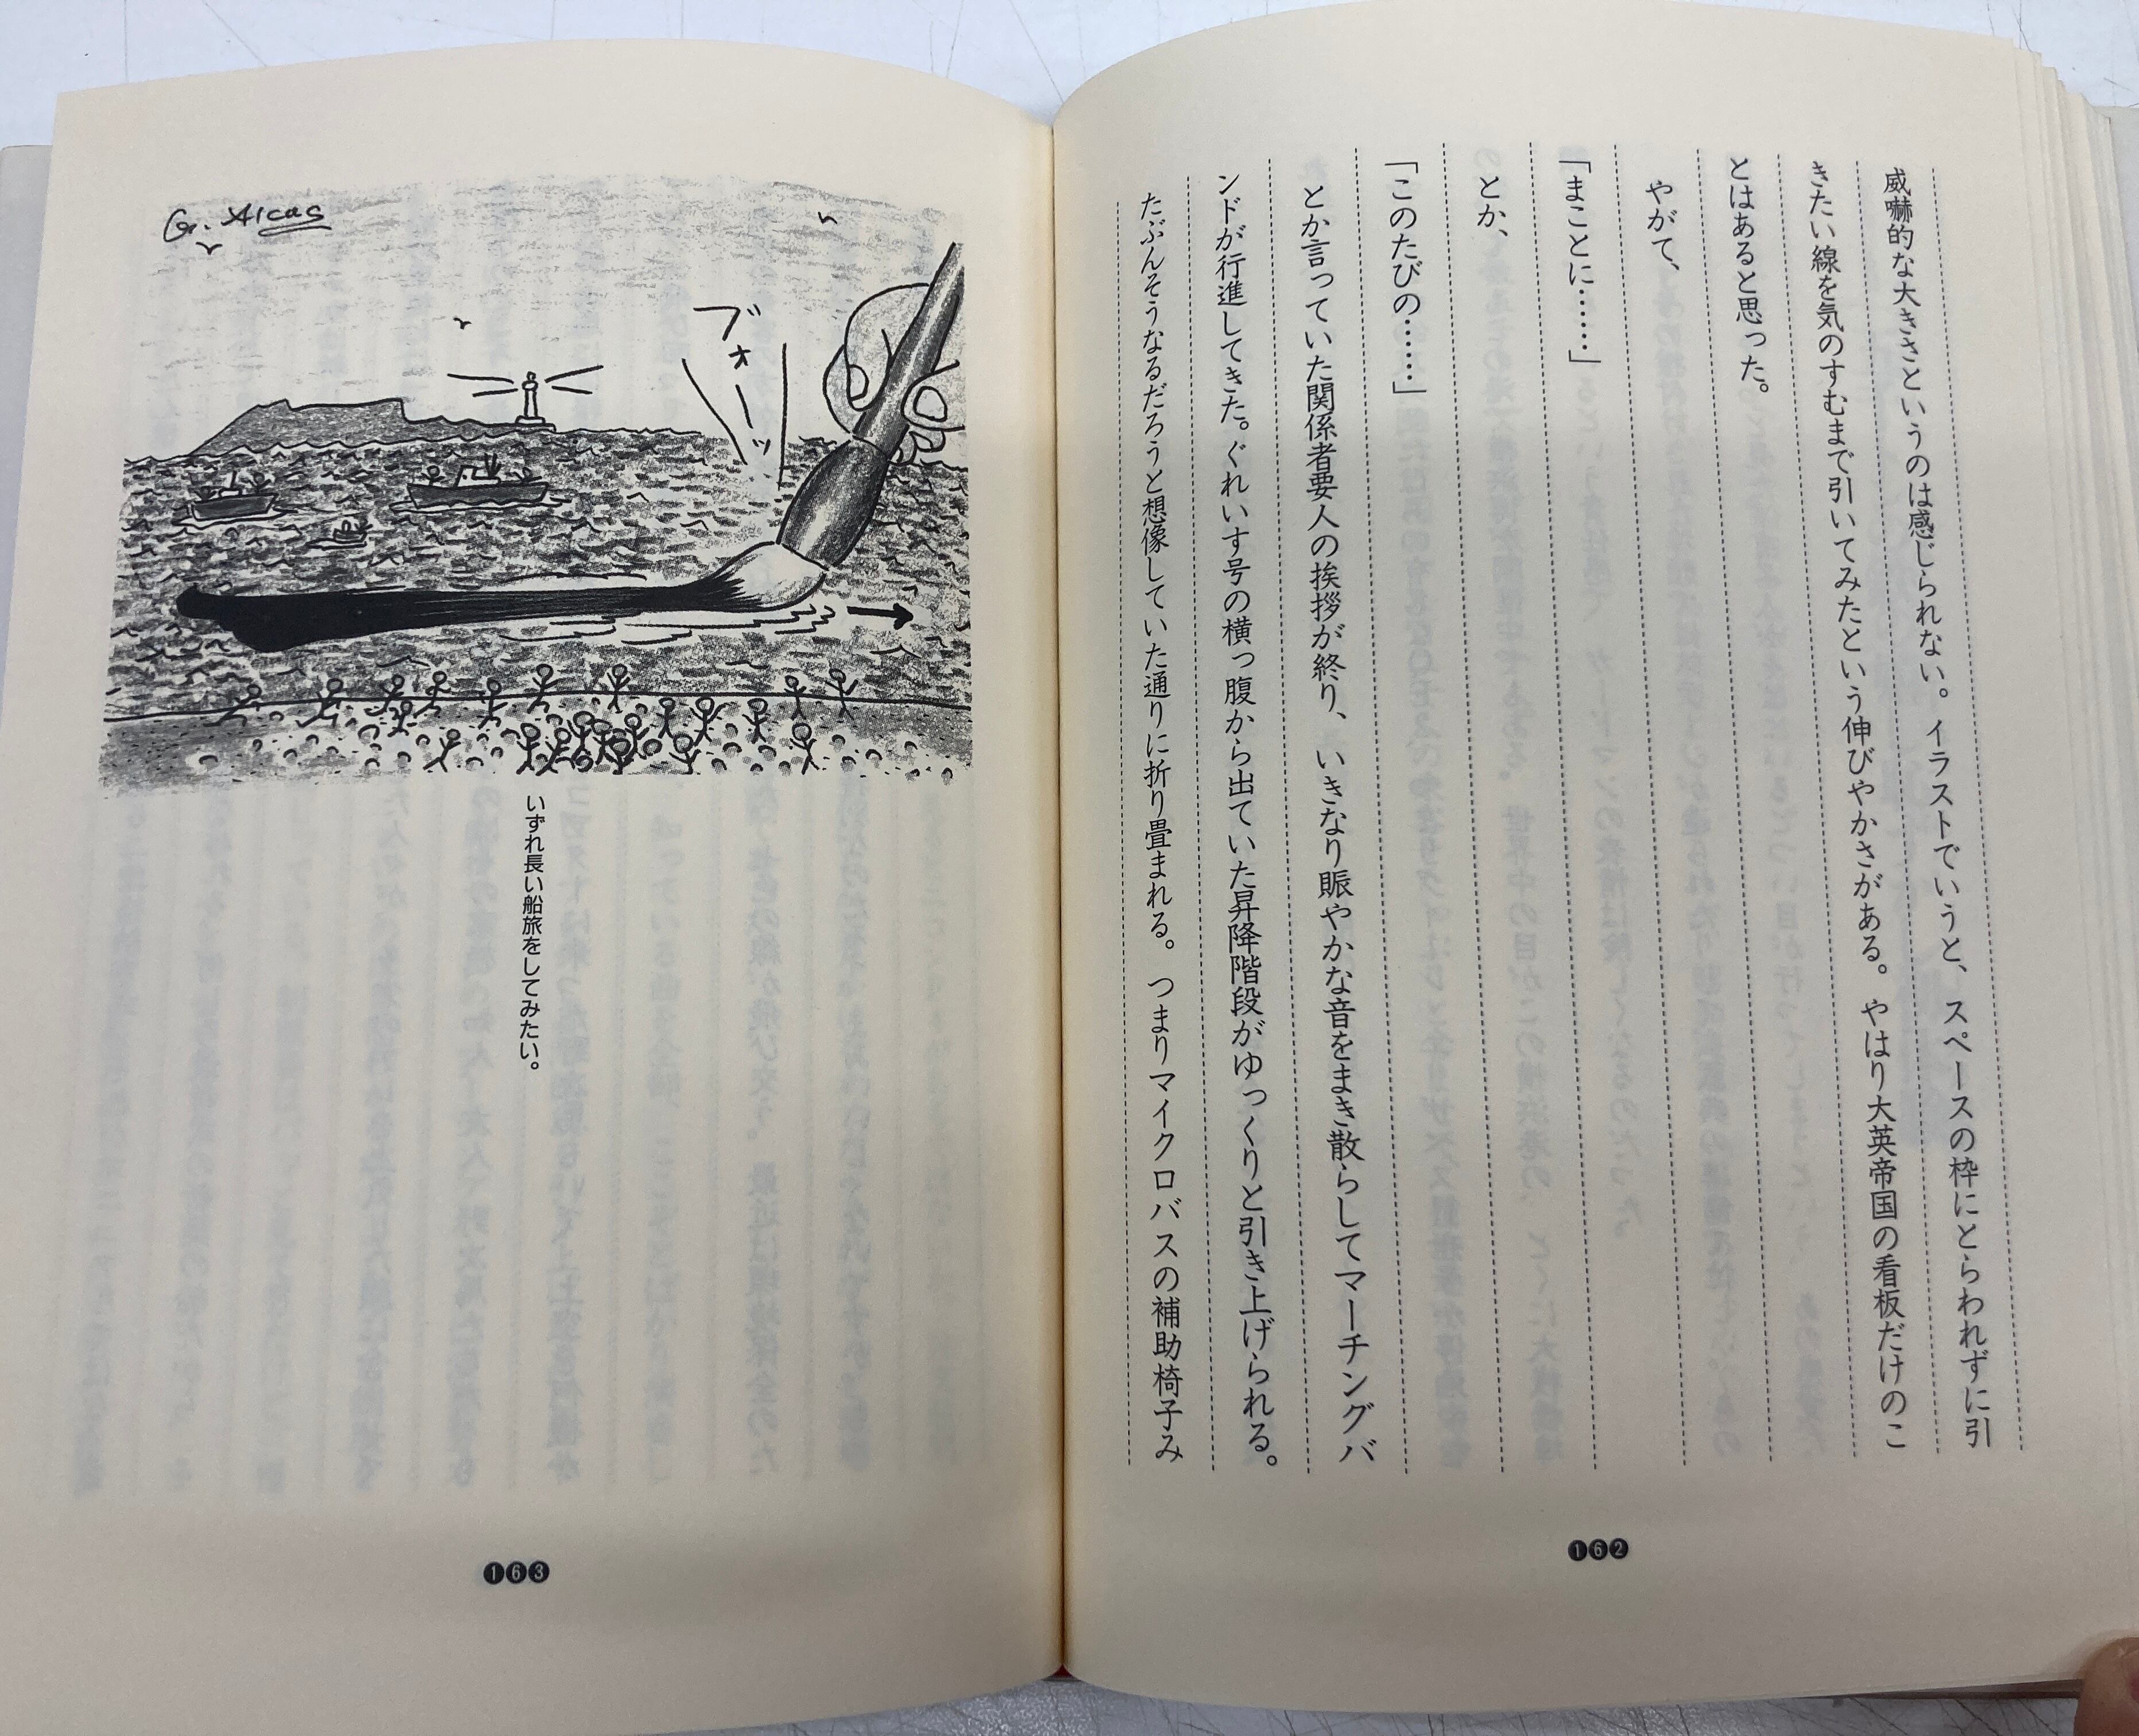 威嚇的な大きさというのは感じられない。イラストでいうと、スペースの枠にとらわれずに引
きたい線を気のすむまで引いてみたという伸びやかさがある。やはり大英帝国の看板だけのこ
とはあると思った。
やがて、
「まことに……」
とか、
「このたびの……」
とか言っていた関係者要人の挨拶が終り、いきなり賑やかな音をまき散らしてマーチングバ
ンドが行進してきた。ぐれいす号の横っ腹から出ていた昇降階段がゆっくりと引き上げられる。
たぶんそうなるだろうと想像していた通りに折り畳まれる。つまりマイクロバスの補助椅子み
162
G. Alcas
ブォーッ
いずれ長い船旅をしてみたい。
163